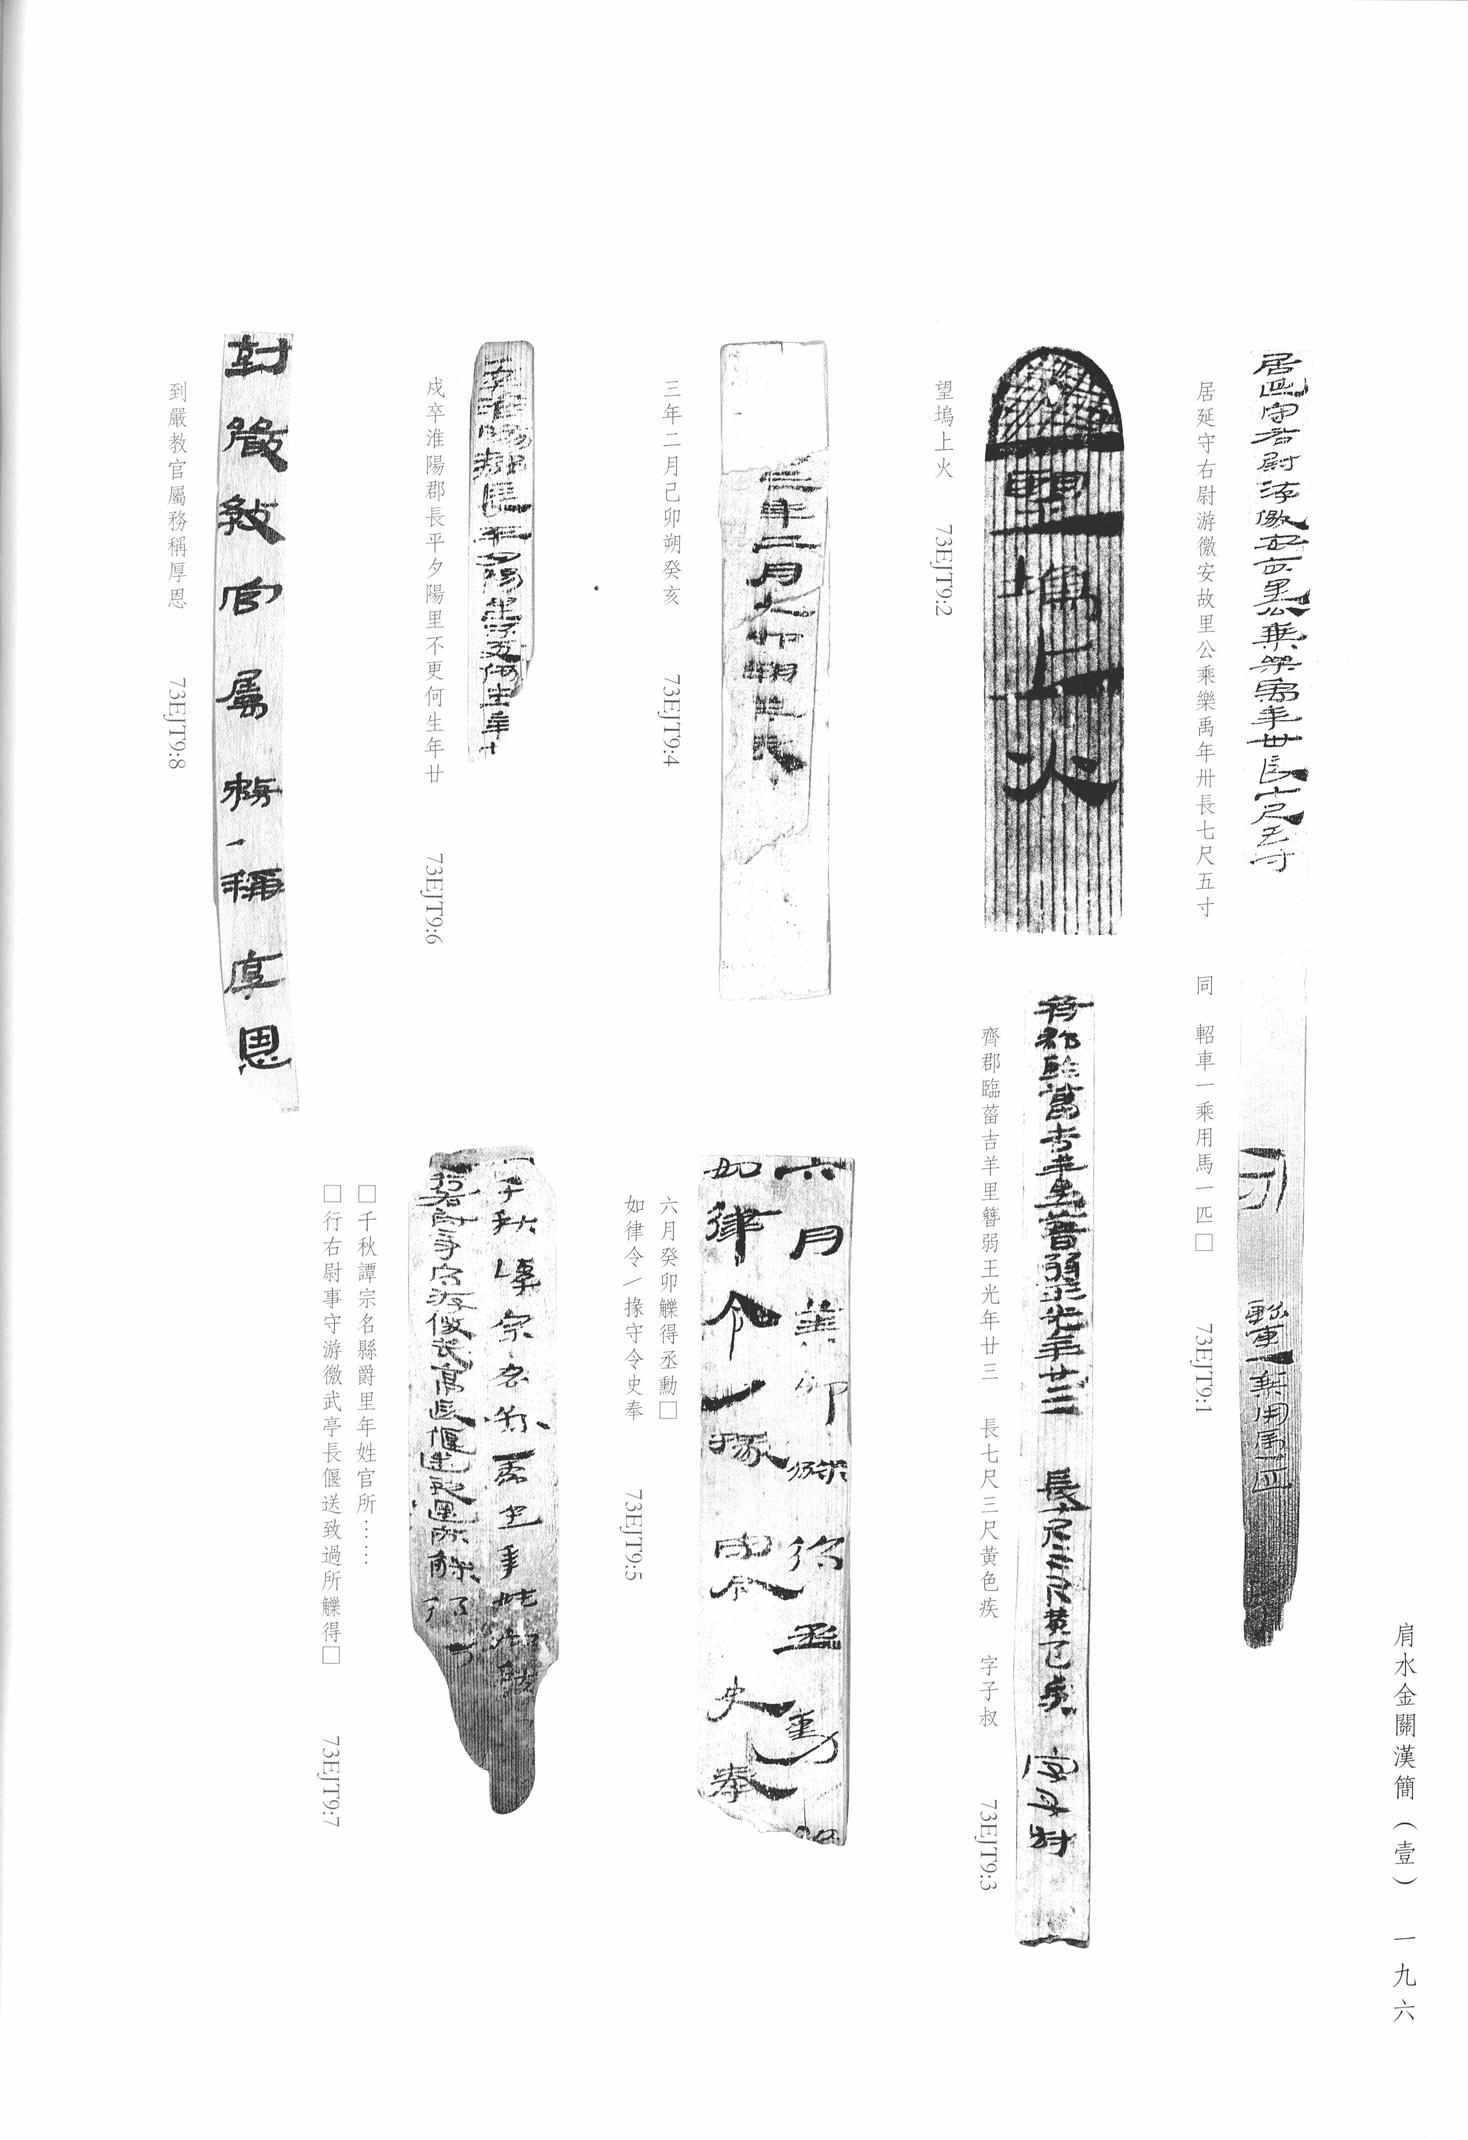 肩水金關漢簡（壹） 一九六
居延守右尉游徼安故里公乘樂禹年卅長七尺五寸 同 軺車一乘用馬一匹□ 73EJT9:1
望塢上火 73EJT9:2
齊郡臨菑吉羊里簪弱王光年廿三 長七尺三尺黃色疾 字子叔 73EJT9:3
三年二月己卯朔癸亥 73EJT9:4
六月癸卯觻得丞勳□
如律令／掾守令史奉 73EJT9:5
戍卒淮陽郡長平夕陽里不更何生年廿 73EJT9:6
□千秋譚宗名縣爵里年姓官所……
□行右尉事守游徼武亭長偃送致過所觻得□ 73EJT9:7
到嚴教官屬務稱厚恩 73EJT9:8